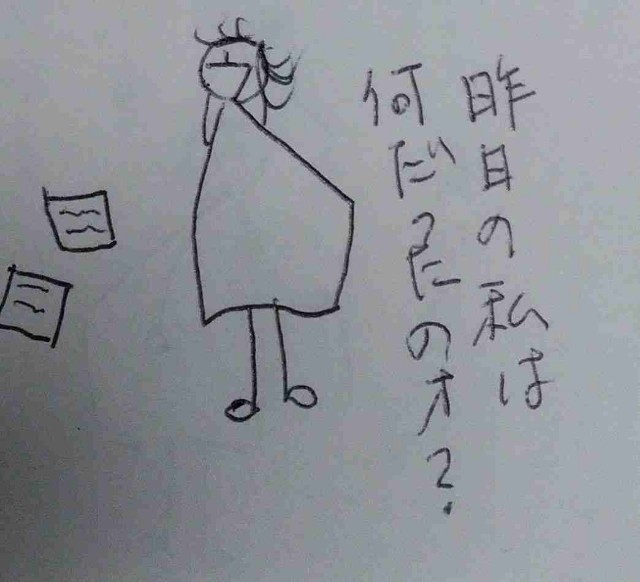 昨日の私は
何だったのオ?